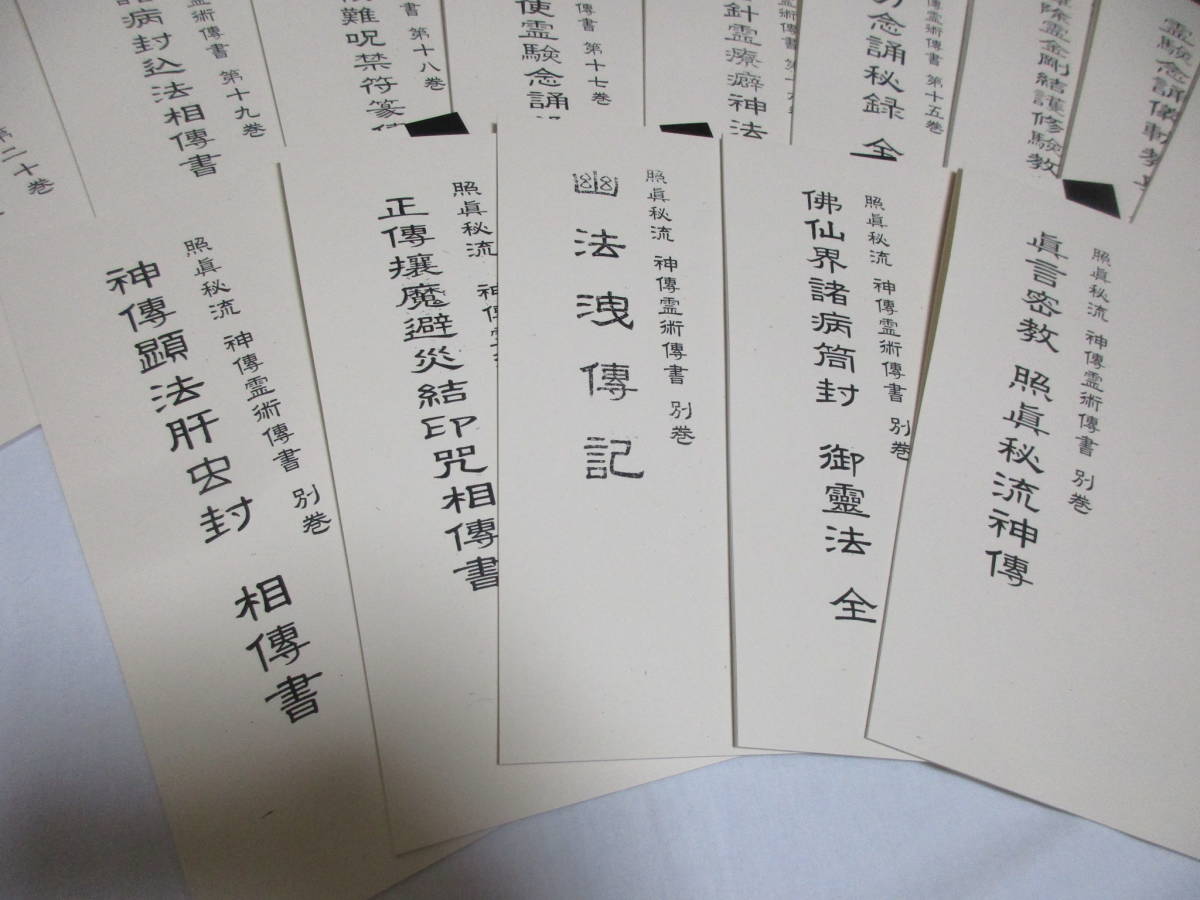 霊験念誦儀軌教
除霊金剛結護修験教
傳霊術傳書 第十五巻
念誦秘録 全
霊術傳書 第十六巻
針霊療癖神法
傳書 第十七巻
使霊験念誦
書 第十八巻
難呪禁符篆
霊術傳書 第十九巻
病封込法相傳書
第二十巻
照眞秘流 神傳霊術傳書 別巻
眞言密教 照眞秘流神傳
照眞秘流 神傳霊術傳書 別巻
佛仙界諸病筒封 御靈法 全
照眞秘流 神傳霊術傳書 別巻
幽法洩傳記
照眞秘流 神傳霊
正傳攘魔避災結印咒相傳書
照眞秘流 神傳霊術傳書 別巻
神傳顕法肝虫封 相傳書